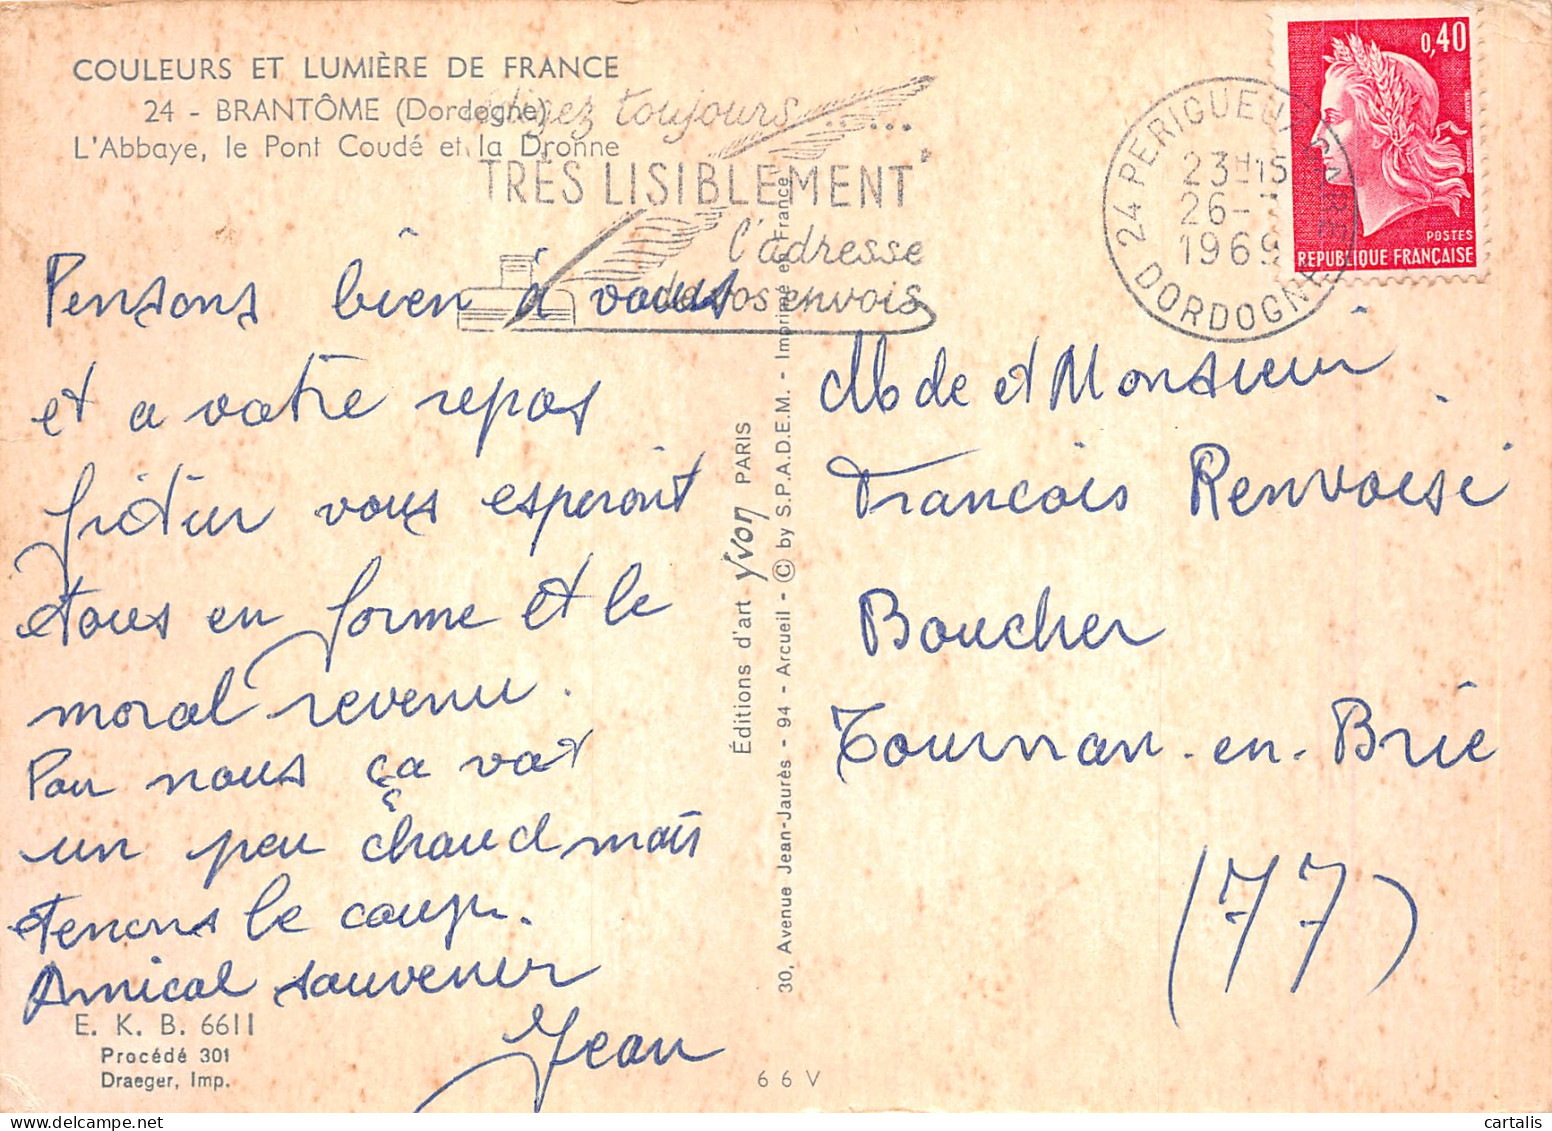 COULEURS ET LUMIÈRE DE FRANCE
24 - BRANTÔME (Dordogne)
L'Abbaye, le Pont Coudé et la Dronne
toujours......
TRÈS LISIBLEMENT
l'adresse
de vos envois
0,40
POSTES
REPUBLIQUE FRANÇAISE
24 PERIGUEUX GARE
23H15
26-7
1969
DORDOGNE
Pensons bien à vous
et a votre repos
vous esperont
tous en forme et le
moral revenu.
Pour nous ça vat
un peu chaud mais
tenons le coup.
Amical souvenir
Jean
E. K. B. 6611
Procédé 301
Draeger, Imp.
Éditions d'art Yvon PARIS
30, Avenue Jean-Jaurès - 94 - Arcueil - © by S.P.A.D.E.M. - Imprimé en France
66V
Mde et Monsieur
Francois Renvoisé
Boucher
Tournan-en-Brie
(77)
cartalis